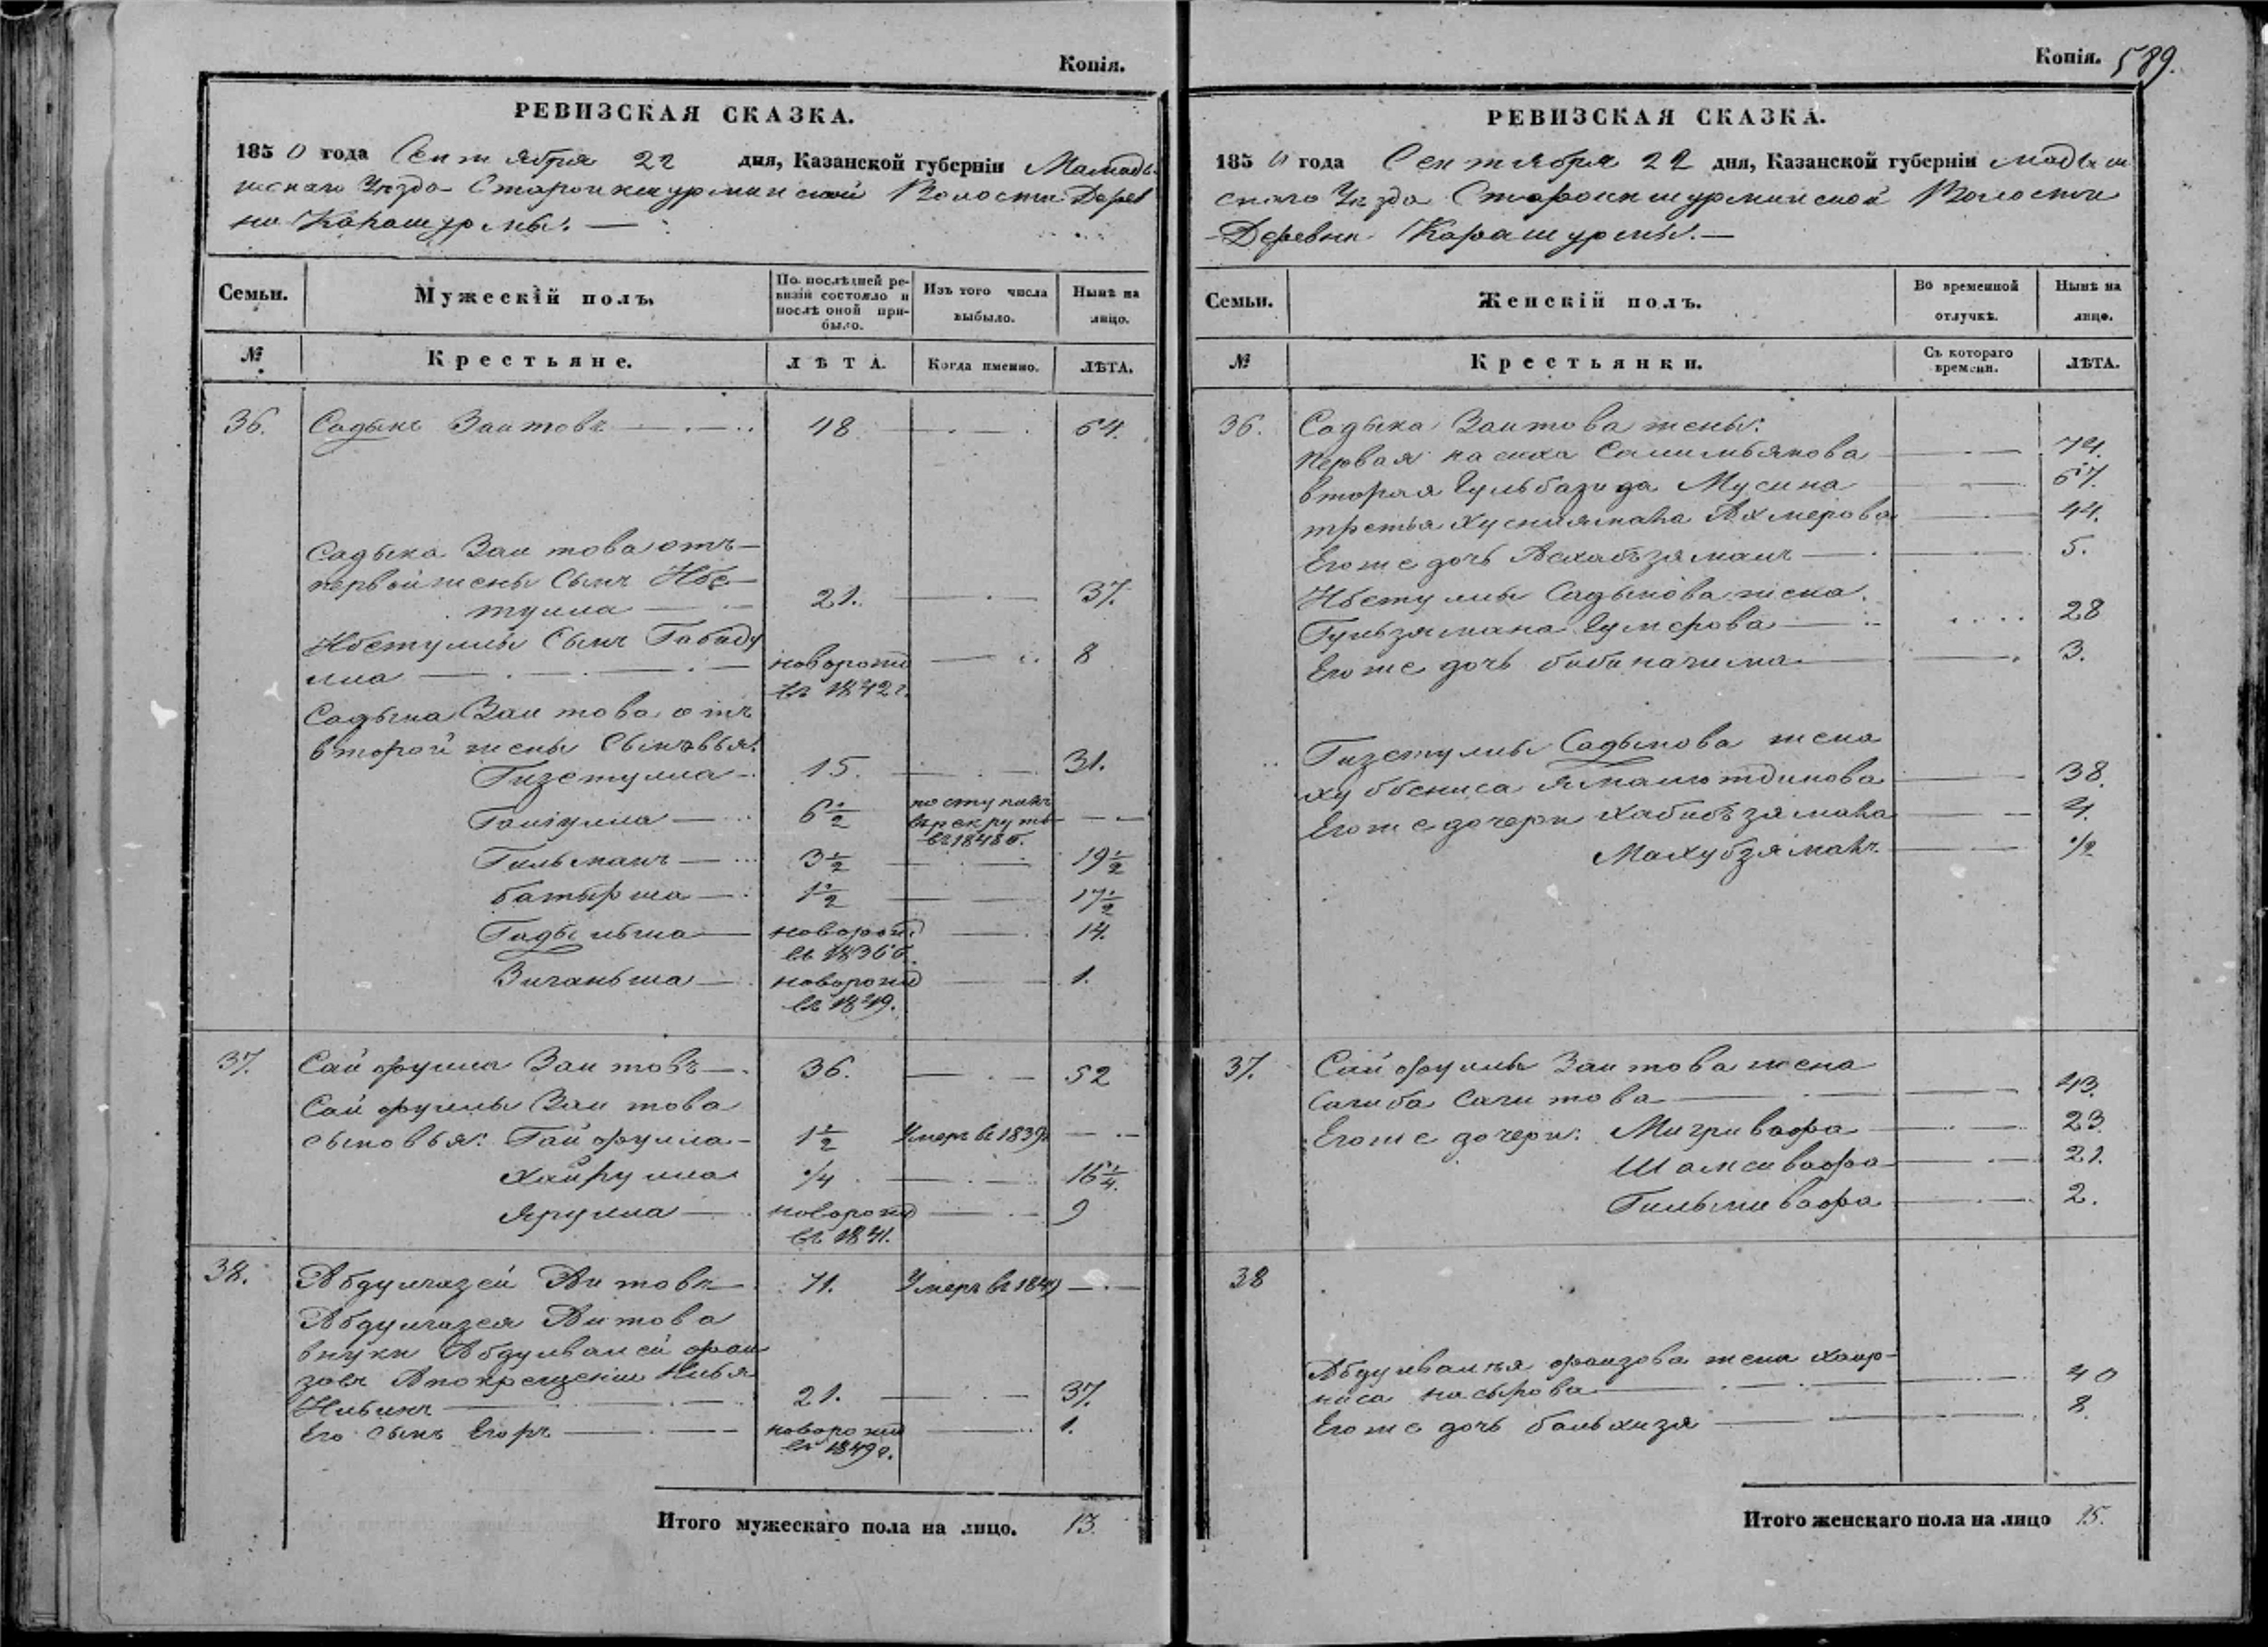 Копія.
РЕВИЗСКАЯ СКАЗКА.
1850 года Сентября 22 дня, Казанской губерніи Мамады
шскаго Уѣзда Староикшурминской Волости Дерев
ни Карашурмы:
Семьи.
Мужескій полъ.
По послѣдней ре-
визіи состояло и
послѣ оной при-
было.
Изъ того числа
выбыло.
Нынѣ на
лицо.
№
Крестьяне.
ЛѢТА.
Когда именно.
ЛѢТА.
36. Садыкъ Заитовъ 48 64.
Садыка Заитова отъ
первой жены Сынъ Нбе-
тулла 21. 37.
Нбетуллы Сынъ Габиду
лла новорожд 8
въ 1842 г.
Садыка Заитова отъ
второй жены Сыновья:
Гизетулла 15. 31.
Галіулла 6 1/2 поступилъ
въ рекруты
въ 1848 г.
Гильманъ 3 1/2 19 1/2
Батырша 1 1/2 17 1/2
Гадыльша новорожд 14.
въ 1836 г.
Зиганьша новорожд 1.
въ 1849.
37. Сайфулла Заитовъ 36. 52
Сайфуллы Заитова
сыновья: Гайфулла 1 1/2 Умеръ въ 1839
Хайрулла 1/4 16 1/4.
Ярулла новорожд 9
въ 1841.
38. Абдулгазей Аитовъ 71. Умеръ въ 1849
Абдулгазея Аитова
внуки Абдулвалей фаи
зовъ А по крещеніи Илья
Ильинъ 21. 37.
Его сынъ Егоръ новорожд 1.
въ 1849 г.
Итого мужескаго пола на лицо. 13.
Копія. 589.
РЕВИЗСКАЯ СКАЗКА.
1850 года Сентября 22 дня, Казанской губерніи Мадыш
скаго Уѣзда Староикшурминской Волости
Деревни Карашурмы.
Семьи.
Женскій полъ.
Во временной
отлучкѣ.
Нынѣ на
лицо.
№
Крестьянки.
Съ котораго
времени.
ЛѢТА.
36. Садыка Заитова жены:
Первая Салимьянова 74.
вторая Гульбазида Мусина 67.
третья Хусниямала Ахмерова 44.
Его же дочь Асхабъзяманъ 5.
Нбетуллы Садыкова жена.
Гульзямана Гумерова 28
Его же дочь бибиначима 3.
Гизетуллы Садыкова жена
Хуббениса Ямалютдинова 38.
Его же дочери Хабибъзямала 4.
Махубзямалъ 1/2
37. Сайфуллы Заитова жена
Сагиба Сагитова 43.
Его же дочери: Мигривафа 23.
Шамсивафа 21.
Гильмивафа 2.
38
Абдулвалея фаизова жена хаир-
ниса насырова 40
Его же дочь бальхизя 8.
Итого женскаго пола на лицо 15.